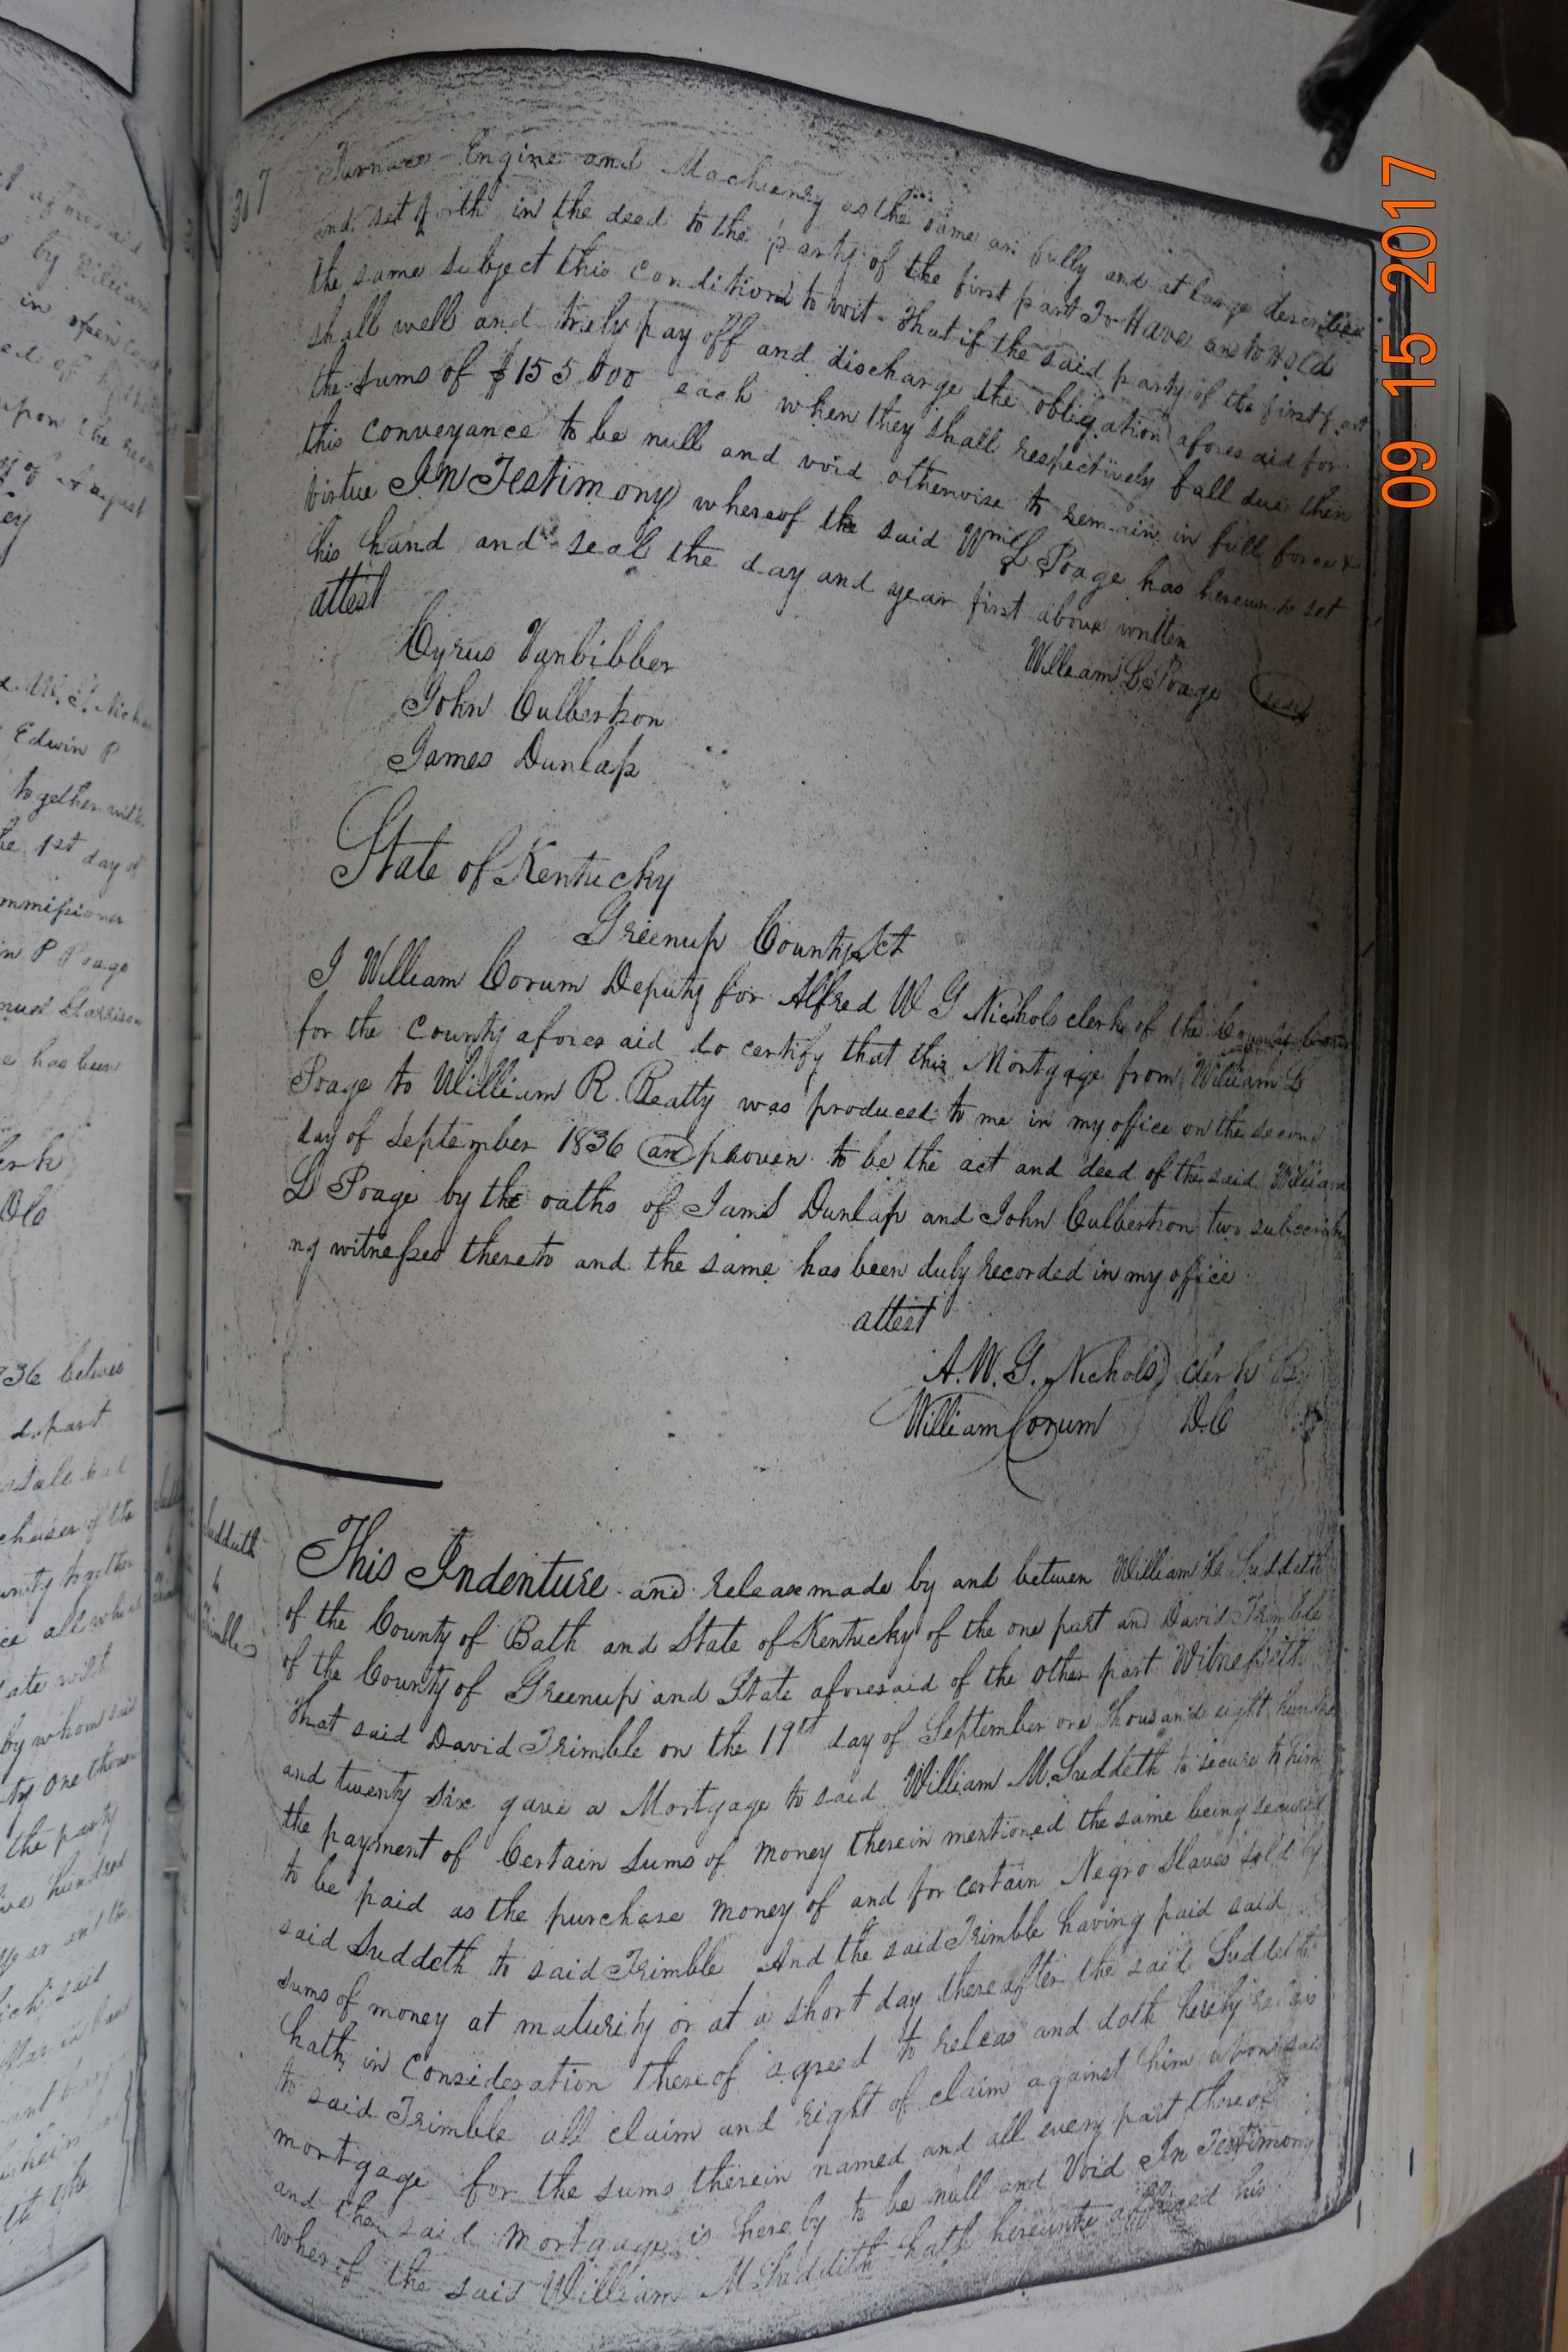 307
Furnace Engine and Machienry as the same are fully and at large described
and set forth in the deed to the party of the first part To Have an to Hold
the same subject this condition to wit. That if the said party of the first part
shall well and truly pay off and discharge the obligation aforesaid for
the sums of $155000 each when they shall respectively fall due then
this conveyance to be null and void otherwise to remain in full force &
virtue In Testimony whereof the said Wm L Poage has hereunto set
his hand and seal the day and year first above written
attest
William L Poage seal
Cyrus Vanbibber
John Culbertson
James Dunlap
State of Kentucky
Greenup County Sct
I William Corum Deputy for Alfred W G Nichols clerk of the County Court
for the County aforesaid do certify that this Mortgage from William L
Poage to William R. Beatty was produced to me in my office on the second
day of September 1836 an proven to be the act and deed of the said William
L Poage by the oaths of Jams Dunlap and John Culbertson two subscribi
ng witnesses thereto and the same has been duly recorded in my office
attest
A. W. G. Nichols clerk By
William Corum D.C
Suddeth
to
Trimble
This Indenture and release made by and betwen William M Suddeth
of the County of Bath and State of Kentucky of the one part and David Trimble
of the County of Greenup and State aforesaid of the other part Witnesseth
That said David Trimble on the 19th day of September one thousand eight hundred
and twenty six gave a Mortgage to said William M. Suddeth to secure to him
the payment of Certain sums of money therein mentioned the same being secured
to be paid as the purchase money of and for certain Negro Slaves sold by
said Suddeth to said Trimble And the said Trimble having paid said
sums of money at maturity or at a short day thereafter the said Suddeth
hath in Consideration thereof agreed to releas and doth hereby
to said Trimble all claim and right of claim against him upon said
mortgage for the sums therein named and all every part thereof
and the said mortgage is hereby to be null and Void In Testimony
wherof the said William M Suddeth hath hereunto affixed his
09 15 2017